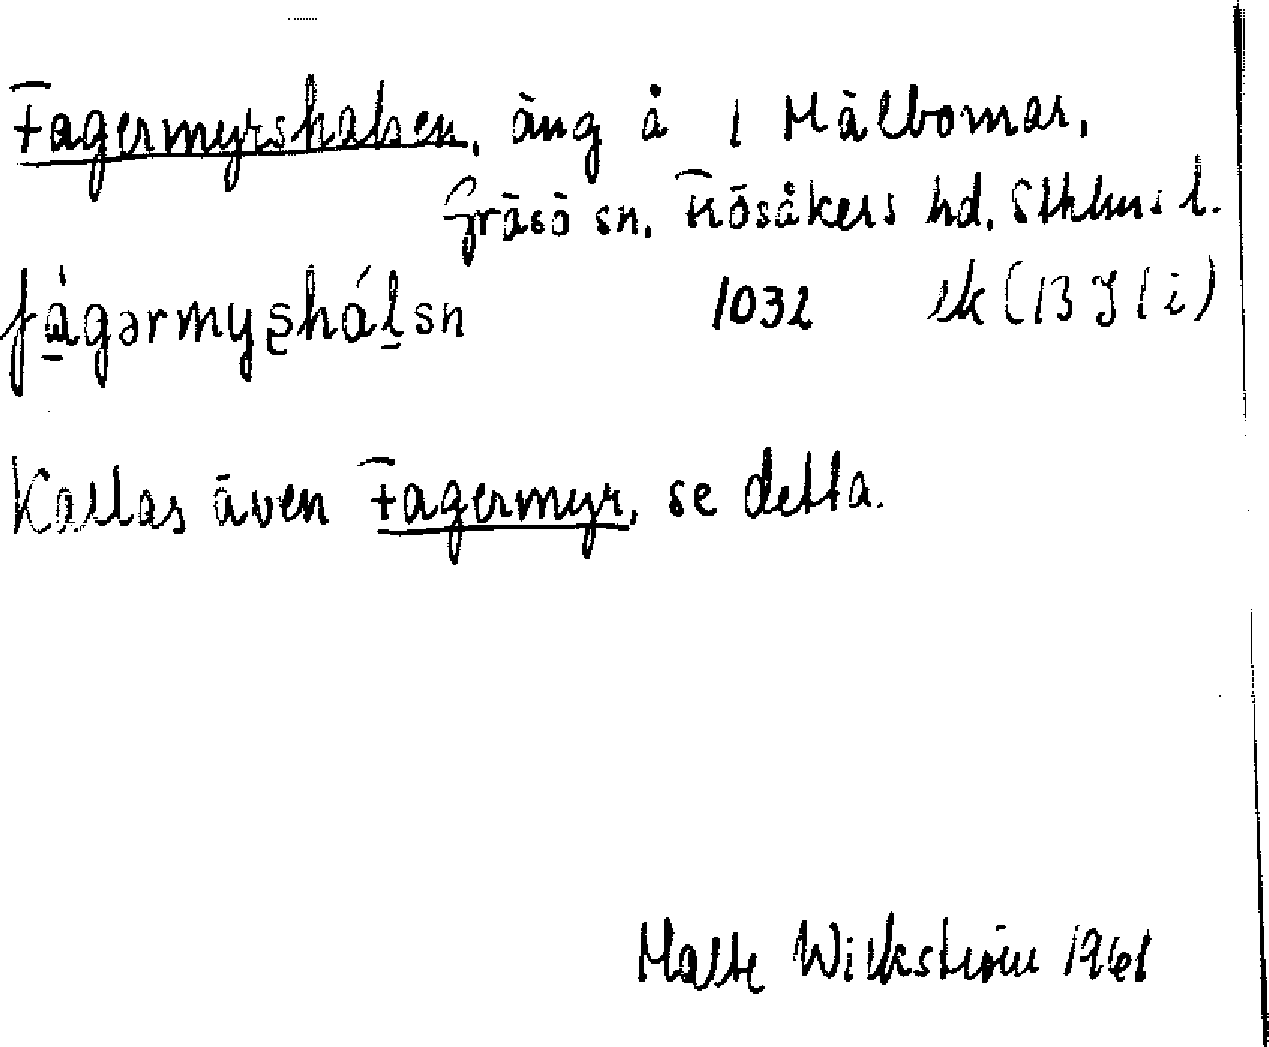 Fagermyrshalsen, äng å 1 Mälbomar,
Gräsö sn, Frösåkers hd, Sthlms l.
fàgərmyshálsn 1032 ek (13 J 1 i)
Kallas även Fagermyr, se detta.
Malte Wikström 1961